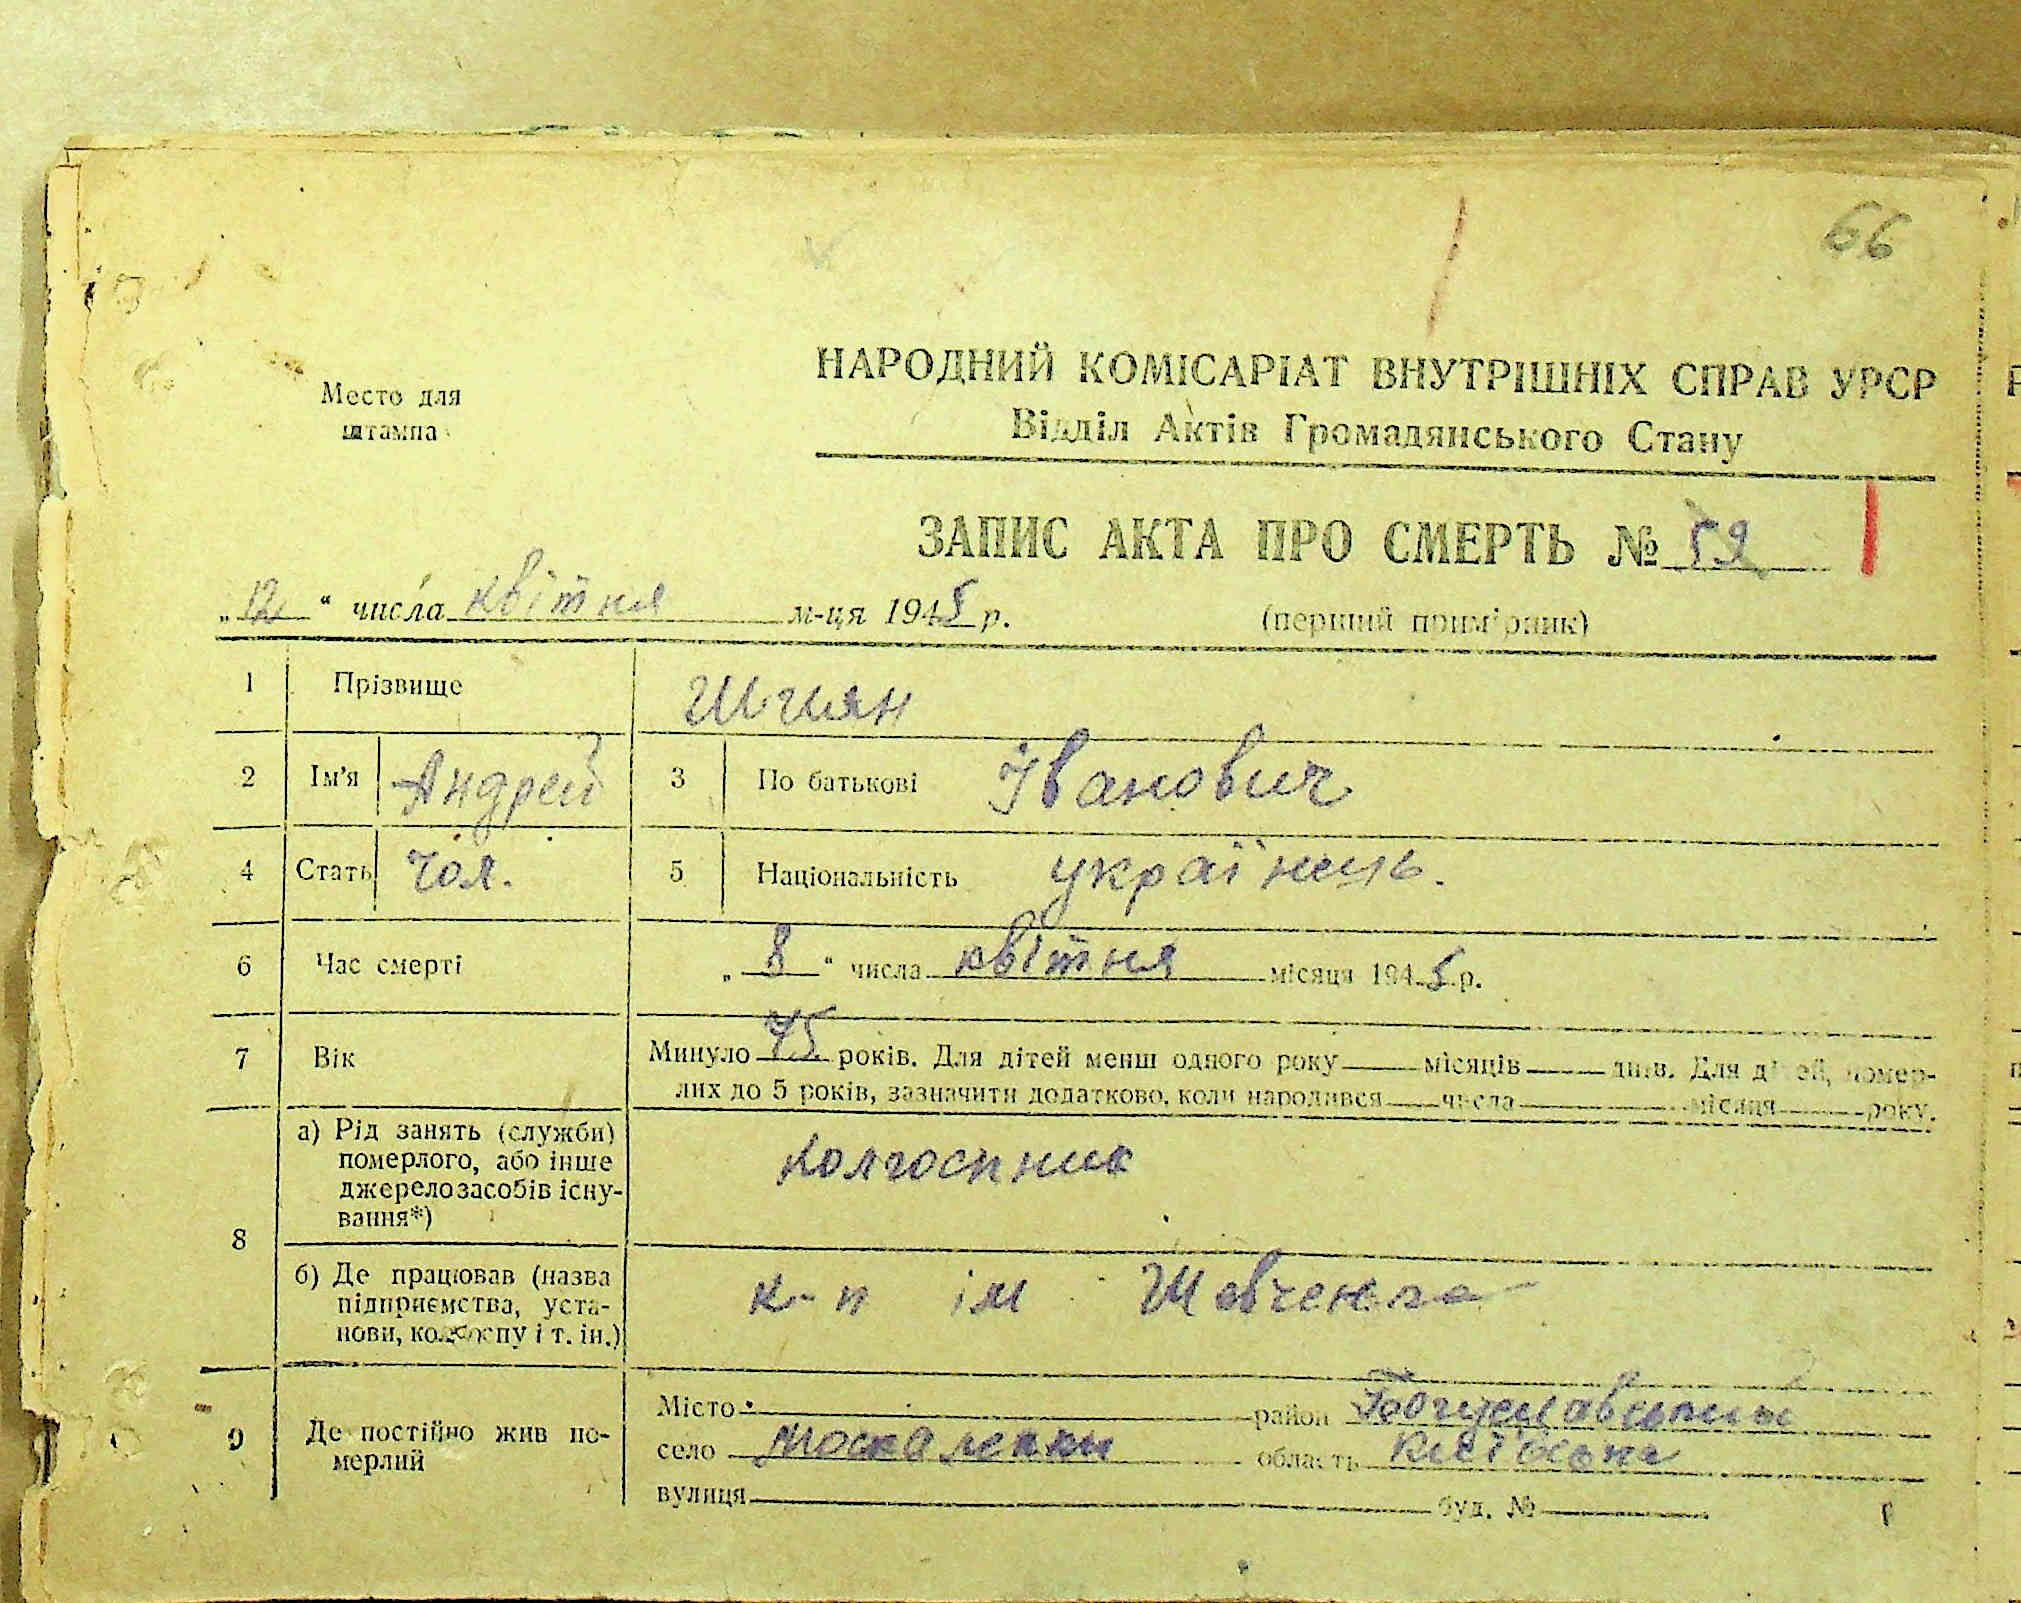 66
НАРОДНИЙ КОМІСАРІАТ ВНУТРІШНІХ СПРАВ УРСР
Место для
штампа
Відділ Актів Громадянського Стану
ЗАПИС АКТА ПРО СМЕРТЬ № 59
„12“ числа квітня м-ця 1945 р.
(перший примірник)
1 Прізвище Шиян
2 Ім'я Андрей 3 По батькові Іванович
4 Стать чол. 5 Національність українець.
6 Час смерті „8“ числа квітня місяця 1945 р.
7 Вік Минуло 75 років. Для дітей менш одного року місяців днів. Для дітей, помер-
лих до 5 років, зазначити додатково, коли народився числа місяця року.
8 а) Рід занять (служби)
померлого, або інше
джерело засобів існу-
вання*)
колгоспник
б) Де працював (назва
підприємства, уста-
нови, колгоспу і т. ін.)
к-п ім Шевченка
9 Де постійно жив по-
мерлий
Місто район Богуславський
село Москаленки область Київська
вулиця буд. №